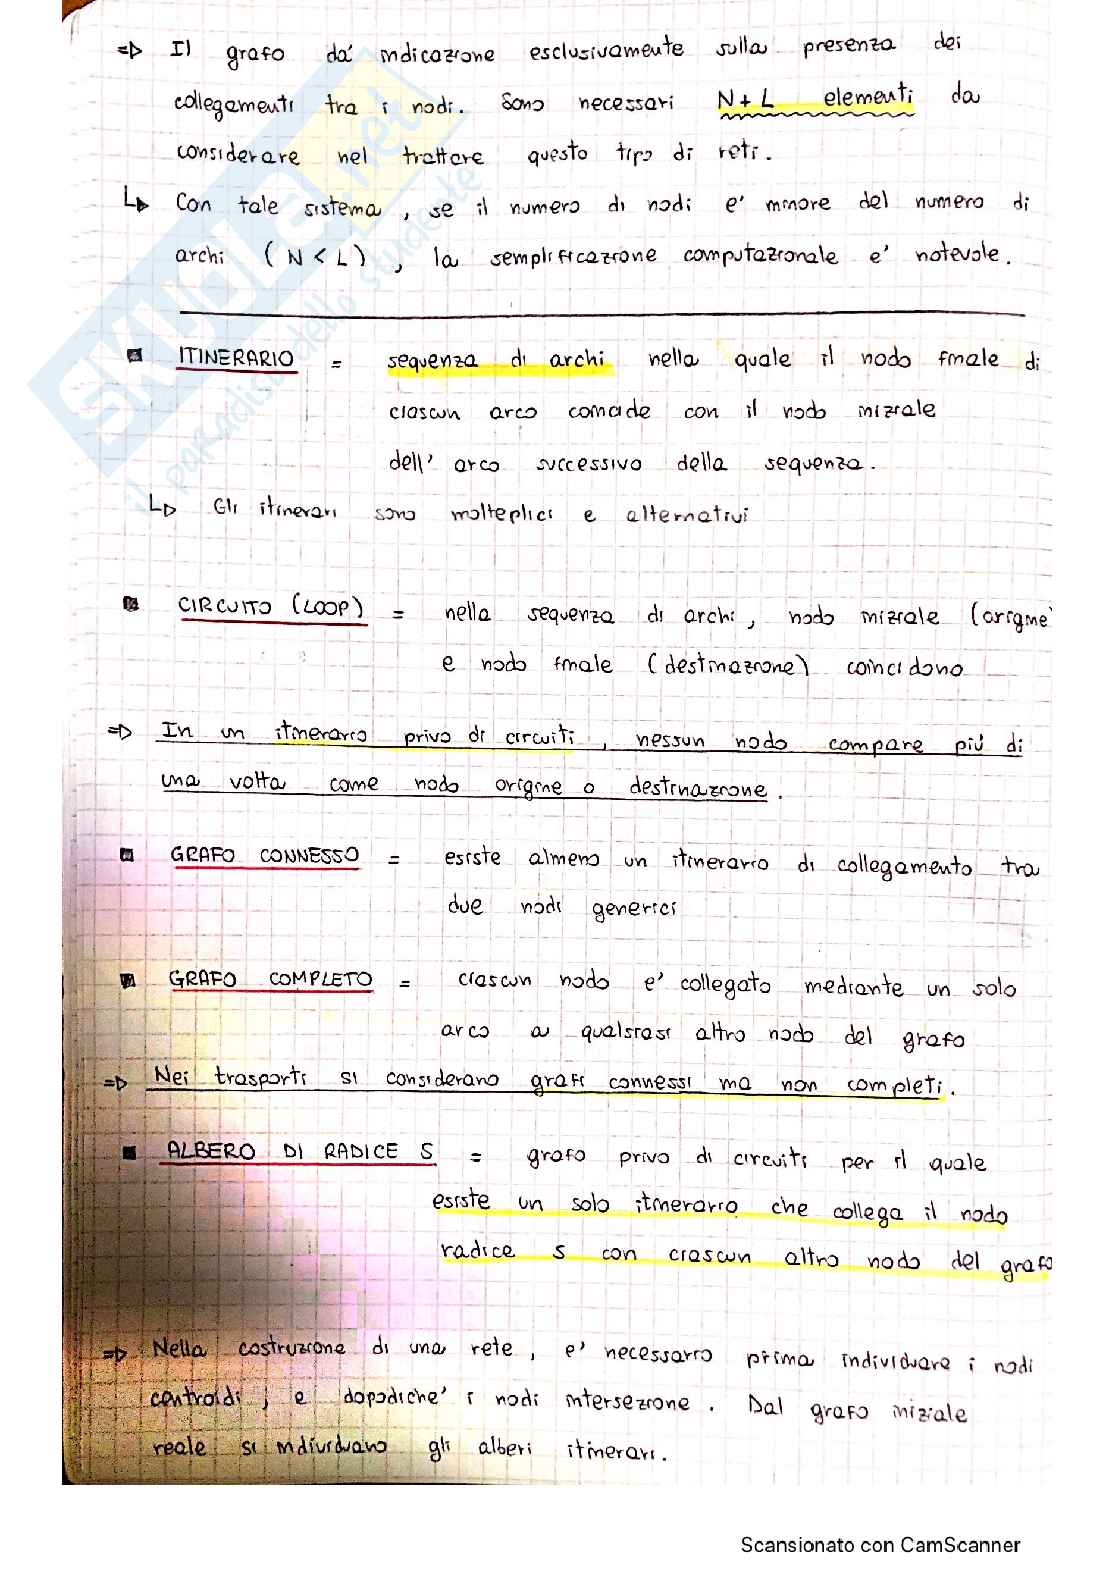 => Il grafo da' indicazione esclusivamente sulla presenza dei
collegamenti tra i nodi. Sono necessari N+L elementi da
considerare nel trattare questo tipo di reti.
↳ Con tale sistema, se il numero di nodi e' minore del numero di
archi (N < L), la semplificazione computazionale e' notevole.
▪ ITINERARIO = sequenza di archi nella quale il nodo finale di
ciascun arco coincide con il nodo iniziale
dell'arco successivo della sequenza.
↳ Gli itinerari sono molteplici e alternativi
▪ CIRCUITO (LOOP) = nella sequenza di archi, nodo iniziale (origine)
e nodo finale (destinazione) coincidono
=> In un itinerario privo di circuiti, nessun nodo compare più di
una volta come nodo origine o destinazione.
▪ GRAFO CONNESSO = esiste almeno un itinerario di collegamento tra
due nodi generici
▪ GRAFO COMPLETO = ciascun nodo e' collegato mediante un solo
arco a qualsiasi altro nodo del grafo
=> Nei trasporti si considerano grafi connessi ma non completi.
▪ ALBERO DI RADICE S = grafo privo di circuiti per il quale
esiste un solo itinerario che collega il nodo
radice S con ciascun altro nodo del grafo
=> Nella costruzione di una rete, e' necessario prima individuare i nodi
centroidi, e dopodiche' i nodi intersezione. Dal grafo iniziale
reale si individuano gli alberi itinerari.
SKUOLA.net
il paradiso dello studente
Scansionato con CamScanner